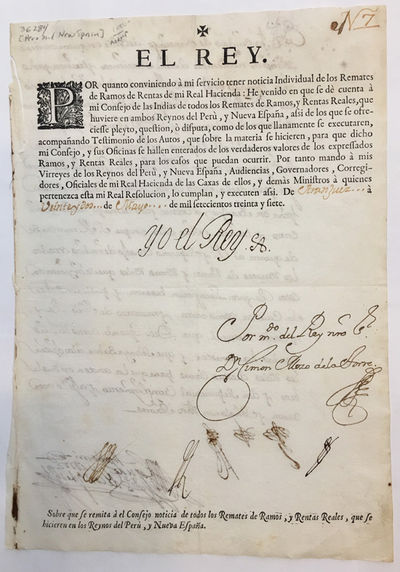 36284
[Peru and New Spain]
N 7
EL REY.
POR quanto conviniendo à mi servicio tener noticia Individual de los Remates
de Ramos de Rentas de mi Real Hacienda: He venido en que se dè cuenta à
mi Consejo de las Indias de todos los Remates de Ramos, y Rentas Reales, que
huviere en ambos Reynos del Perù, y Nueva España, asi de los que se ofre-
ciesse pleyto, question, ò disputa, como de los que llanamente se executaren,
acompañando Testimonio de los Autos, que sobre la materia se hicieren, para que dicho
mi Consejo, y sus Oficinas se hallen enterados de los verdaderos valores de los expressados
Ramos, y Rentas Reales, para los casos que puedan ocurrir. Por tanto mando à mis
Virreyes de los Reynos del Perù, y Nueva España, Audiencias, Governadores, Corregi-
dores, Oficiales de mi Real Hacienda de las Caxas de ellos, y demàs Ministros à quienes
pertenezca esta mi Real Resolucion, lo cumplan, y executen assi. De Aranjuez à
Veinte y dos de Mayo de mil setecientos treinta y siete.
yo el Rey
Por mdo del Rey nro
Dn Simon Mozo de la Torre
Sobre que se remita à el Consejo noticia de todos los Remates de Ramos, y Rentas Reales, que se
hicieren en los Reynos del Perù, y Nueva España.